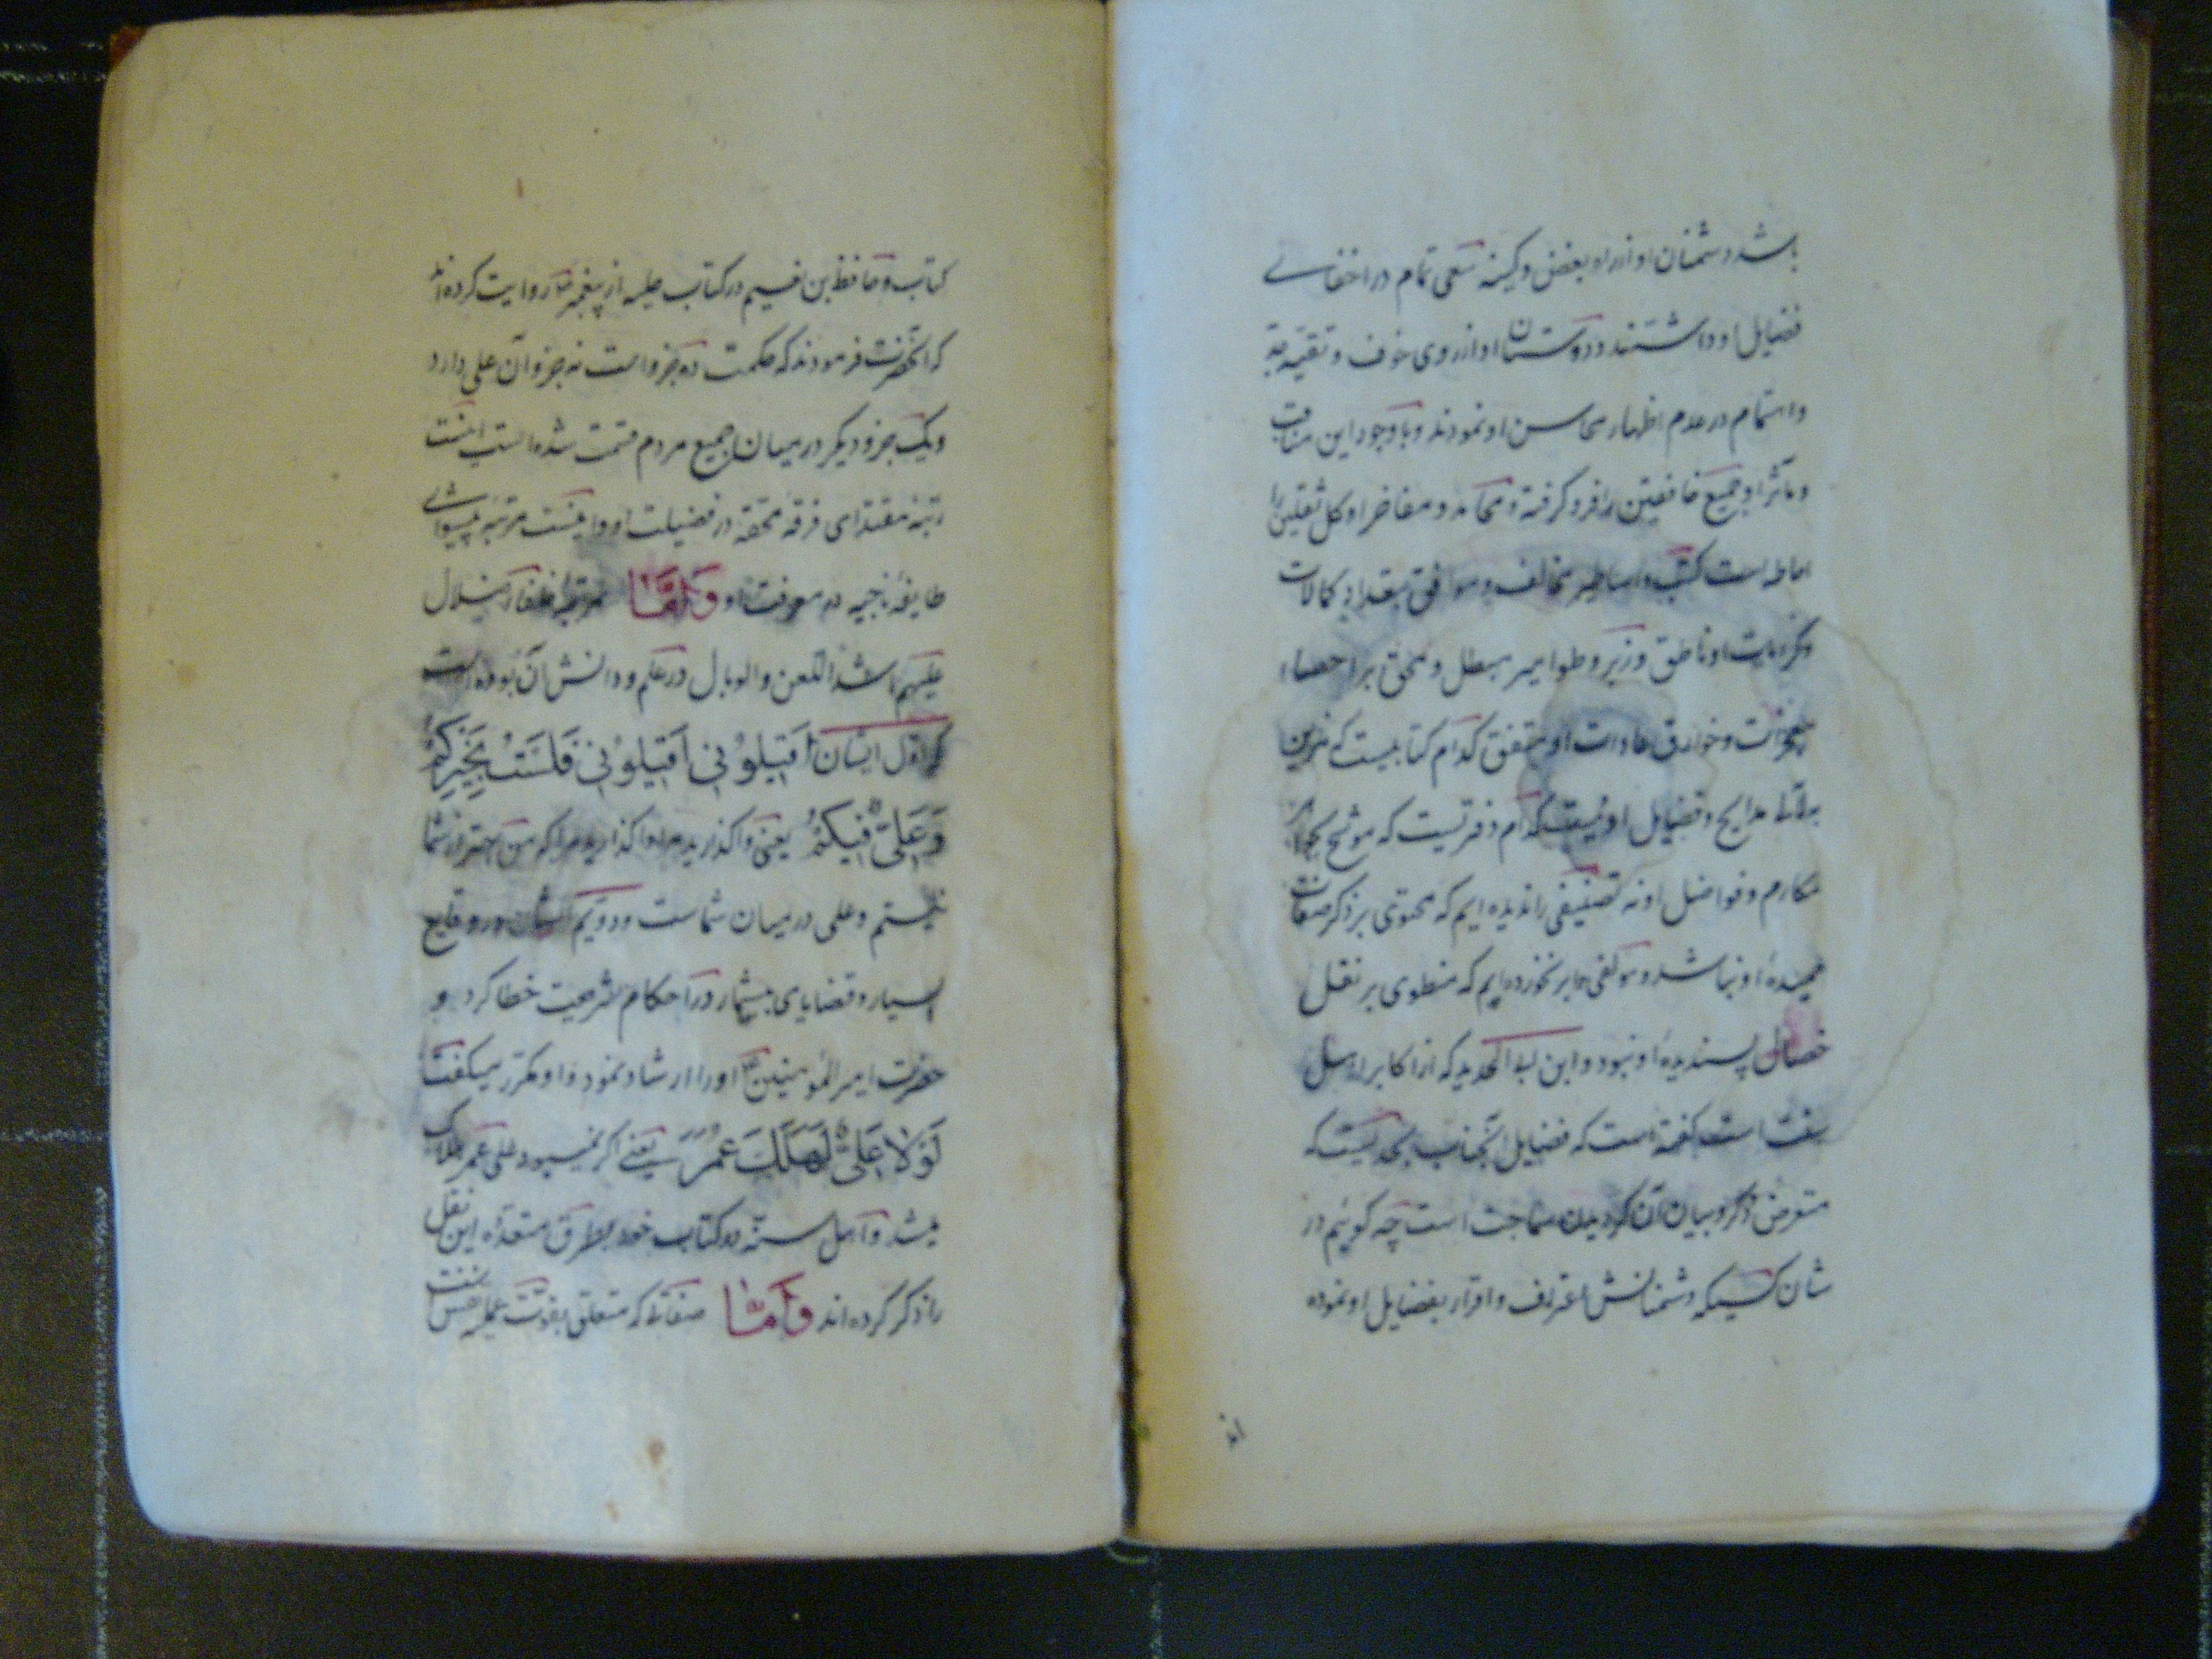 باشد دشمنان او از راه بغض و کینه سعی تمام در اخفای
فضایل او داشتند و دوستان او از روی خوف و تقیه جد
و اهتمام در عدم اظهار محاسن او نمودند و با وجود این مناقب
و مآثر او جمیع خافقین را فرو گرفته و محامد و مفاخر او کل ثقلین را
احاطه است کتب و اساطیر مخالف و موافق بتعداد کمالات
و کرامات او ناطق و زبر و طوامیر مبطل و محق بر احصاء
معجزات و خوارق عادات او متفق کدام کتابیست که مزین
مدایح و فضایل او نیست کدام دفتریست که موشح
مکارم و فواضل او نه تصنیفی را ندیده ایم که محتوی بر ذکر صفات
حمیدهٔ او نباشد و مؤلفی را بر نخورده ایم که منطوی بر نقل
خصائل پسندیدهٔ او نبود و ابن ابی الحدید که از اکابر اهل
سنت است گفته است که فضایل آنجناب بحدیست که
متعرض ذکر و بیان آن گردیدن سماجت است چه گوئیم در
شان کسیکه دشمنانش اعتراف و اقرار بفضایل او نموده
اند
کتاب و حافظ بن نعیم در کتاب حلیه از پیغمبر روایت کرده اند
که آنحضرت فرمودند که حکمت ده جزو است نه جزو آن علی دارد
و یک جزو دیگر در میان جمیع مردم قسمت شده است اینست
رتبه مقتدای فرقه محقه در فضیلت او و اینست مرتبه پیشوای
طایفهٔ ناجیه در معرفت او وَاَمَّا مرتبهٔ خلفاء ضلال
علیهم اشد اللعن و الوبال در علم و دانش آن بوده است
که اول ایشان اَقیلُوْنی اَقیلُوْنی فَلَسْتُ بِخَیْرِکُمْ
وَعَلیٌّ فیکُمْ یعنی واگذارید مرا واگذارید مرا که من بهتر از شما
نیستم و علی در میان شماست و دویم ایشان در وقایع
بسیار و قضایای بیشمار در احکام شریعت خطا کرد و
حضرت امیر المؤمنین او را ارشاد نمود و او مکرر میگفت
لَوْلاٰ عَلیٌّ لَهَلَکَ عُمَرُ یعنی اگر نمیبود علی عمر هلاک
میشد و اهل سنّه در کتاب خود بطرق متعدّده این نقل
را ذکر کرده اند وَاَمَّا صفاتی که متعلق بقوت عملیه